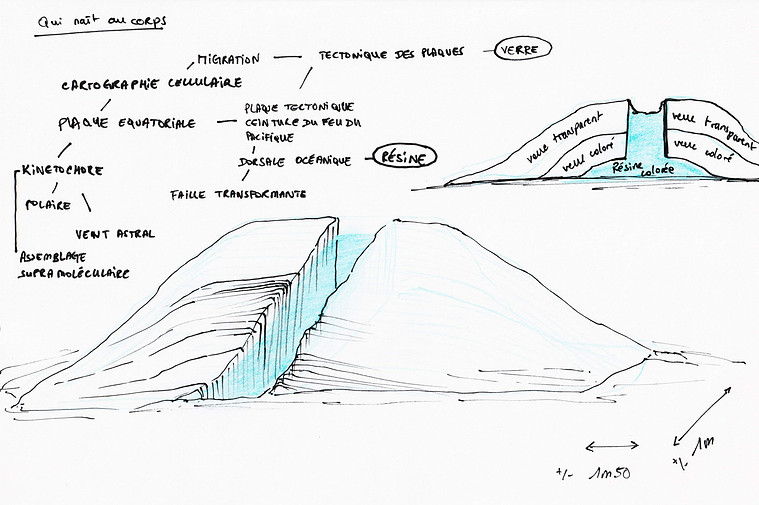 Qui naît au corps
MIGRATION
TECTONIQUE DES PLAQUES
VERRE
CARTOGRAPHIE CELLULAIRE
PLAQUE EQUATORIALE
PLAQUE TECTONIQUE
CEINTURE DU FEU DU
PACIFIQUE
KINETOCHORE
DORSALE OCÉANIQUE
RÉSINE
POLAIRE
FAILLE TRANSFORMANTE
VENT ASTRAL
ASSEMBLAGE
SUPRAMOLÉCULAIRE
verre transparent
verre transparent
verre coloré
verre coloré
Résine
colorée
+/- 1m50
+/- 1m